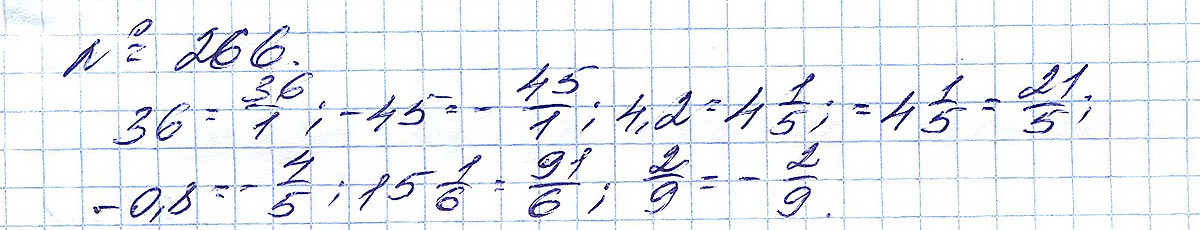 № 266.
36 = 36/1; -45 = -45/1; 4,2 = 4 1/5; = 4 1/5 = 21/5;
-0,8 = -4/5; 15 1/6 = 91/6; 2/9 = -2/9.